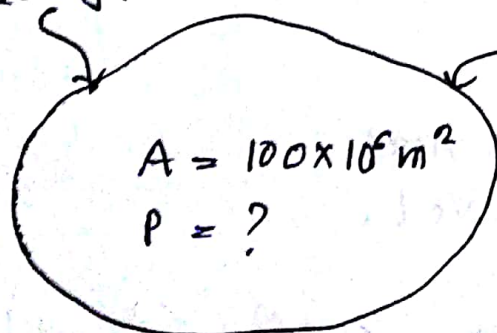 A = 100 x 10⁶ m²
P = ?